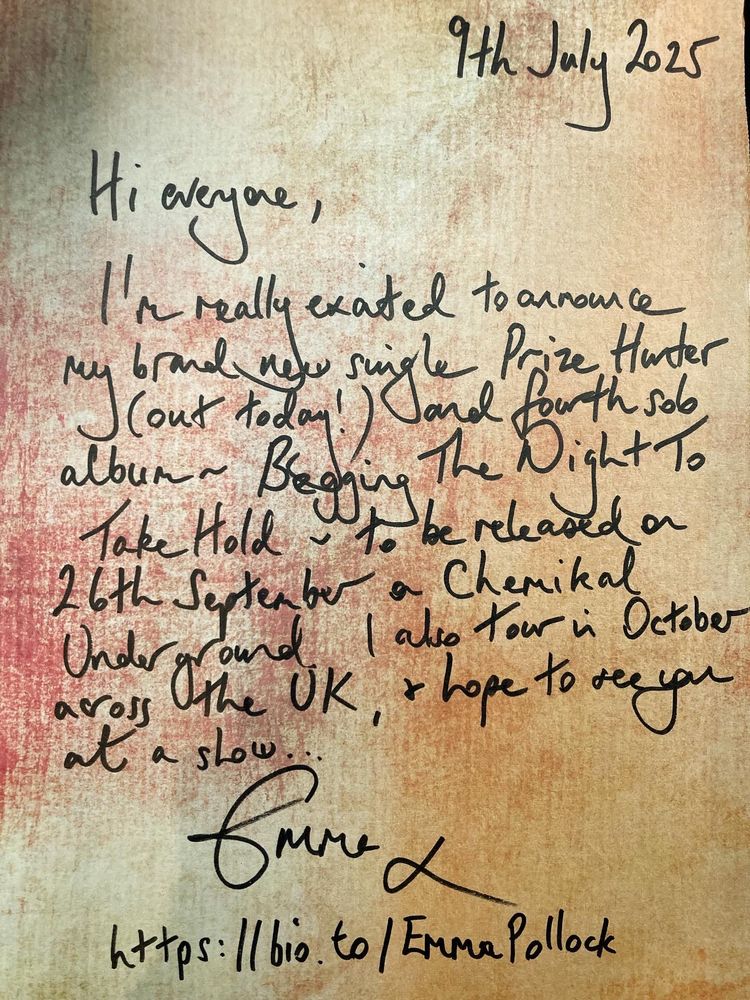 9th July 2025
Hi everyone,
I'm really excited to announce
my brand new single Prize Hunter
(out today!) and fourth solo
album ~ Begging The Night To
Take Hold ~ to be released on
26th September on Chemikal
Underground. I also tour in October
across the UK, & hope to see you
at a show...
Emma x
https://bio.to/EmmaPollock